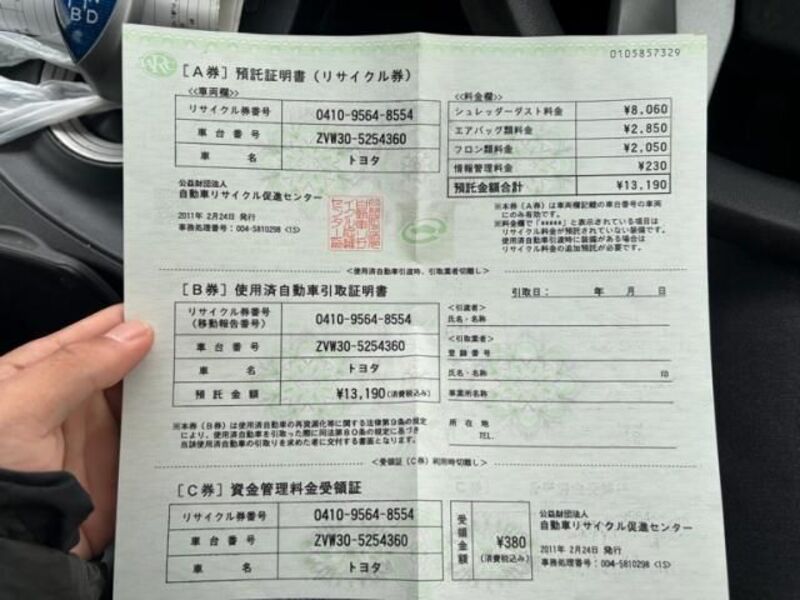 0105857329
[A券] 預託証明書(リサイクル券)
≪車両欄≫
リサイクル券番号 0410-9564-8554
車台番号 ZVW30-5254360
車名 トヨタ
≪料金欄≫
シュレッダーダスト料金 ¥8,060
エアバッグ類料金 ¥2,850
フロン類料金 ¥2,050
情報管理料金 ¥230
預託金額合計 ¥13,190
公益財団法人
自動車リサイクル促進センター
2011年 2月24日 発行
事務処理番号:004-5810298 <1S>
※本券(A券)は車両欄記載の車台番号の車両
にのみ有効です。
※料金欄で「*****」と表示されている項目は
リサイクル料金が預託されていない装備です。
使用済自動車引渡時に装備がある場合は
リサイクル料金の追加預託が必要です。
<使用済自動車引渡時、引取業者切離し>
[B券] 使用済自動車引取証明書
引取日: 年 月 日
リサイクル券番号
(移動報告番号) 0410-9564-8554
車台番号 ZVW30-5254360
車名 トヨタ
預託金額 ¥13,190(消費税込み)
<引渡者>
氏名・名称
<引取業者>
登録番号
氏名・名称 印
事業所名称
所在地
TEL.
※本券(B券)は使用済自動車の再資源化等に関する法律第9条の規定
により、使用済自動車を引取った際に同法第80条の規定に基づき
当該使用済自動車の引取りを求めた者に交付する書面となります。
<受領証(C券)利用時切離し>
[C券] 資金管理料金受領証
リサイクル券番号 0410-9564-8554
車台番号 ZVW30-5254360
車名 トヨタ
受領金額 ¥380
(消費税込み)
公益財団法人
自動車リサイクル促進センター
2011年 2月24日 発行
事務処理番号:004-5810298 <1S>